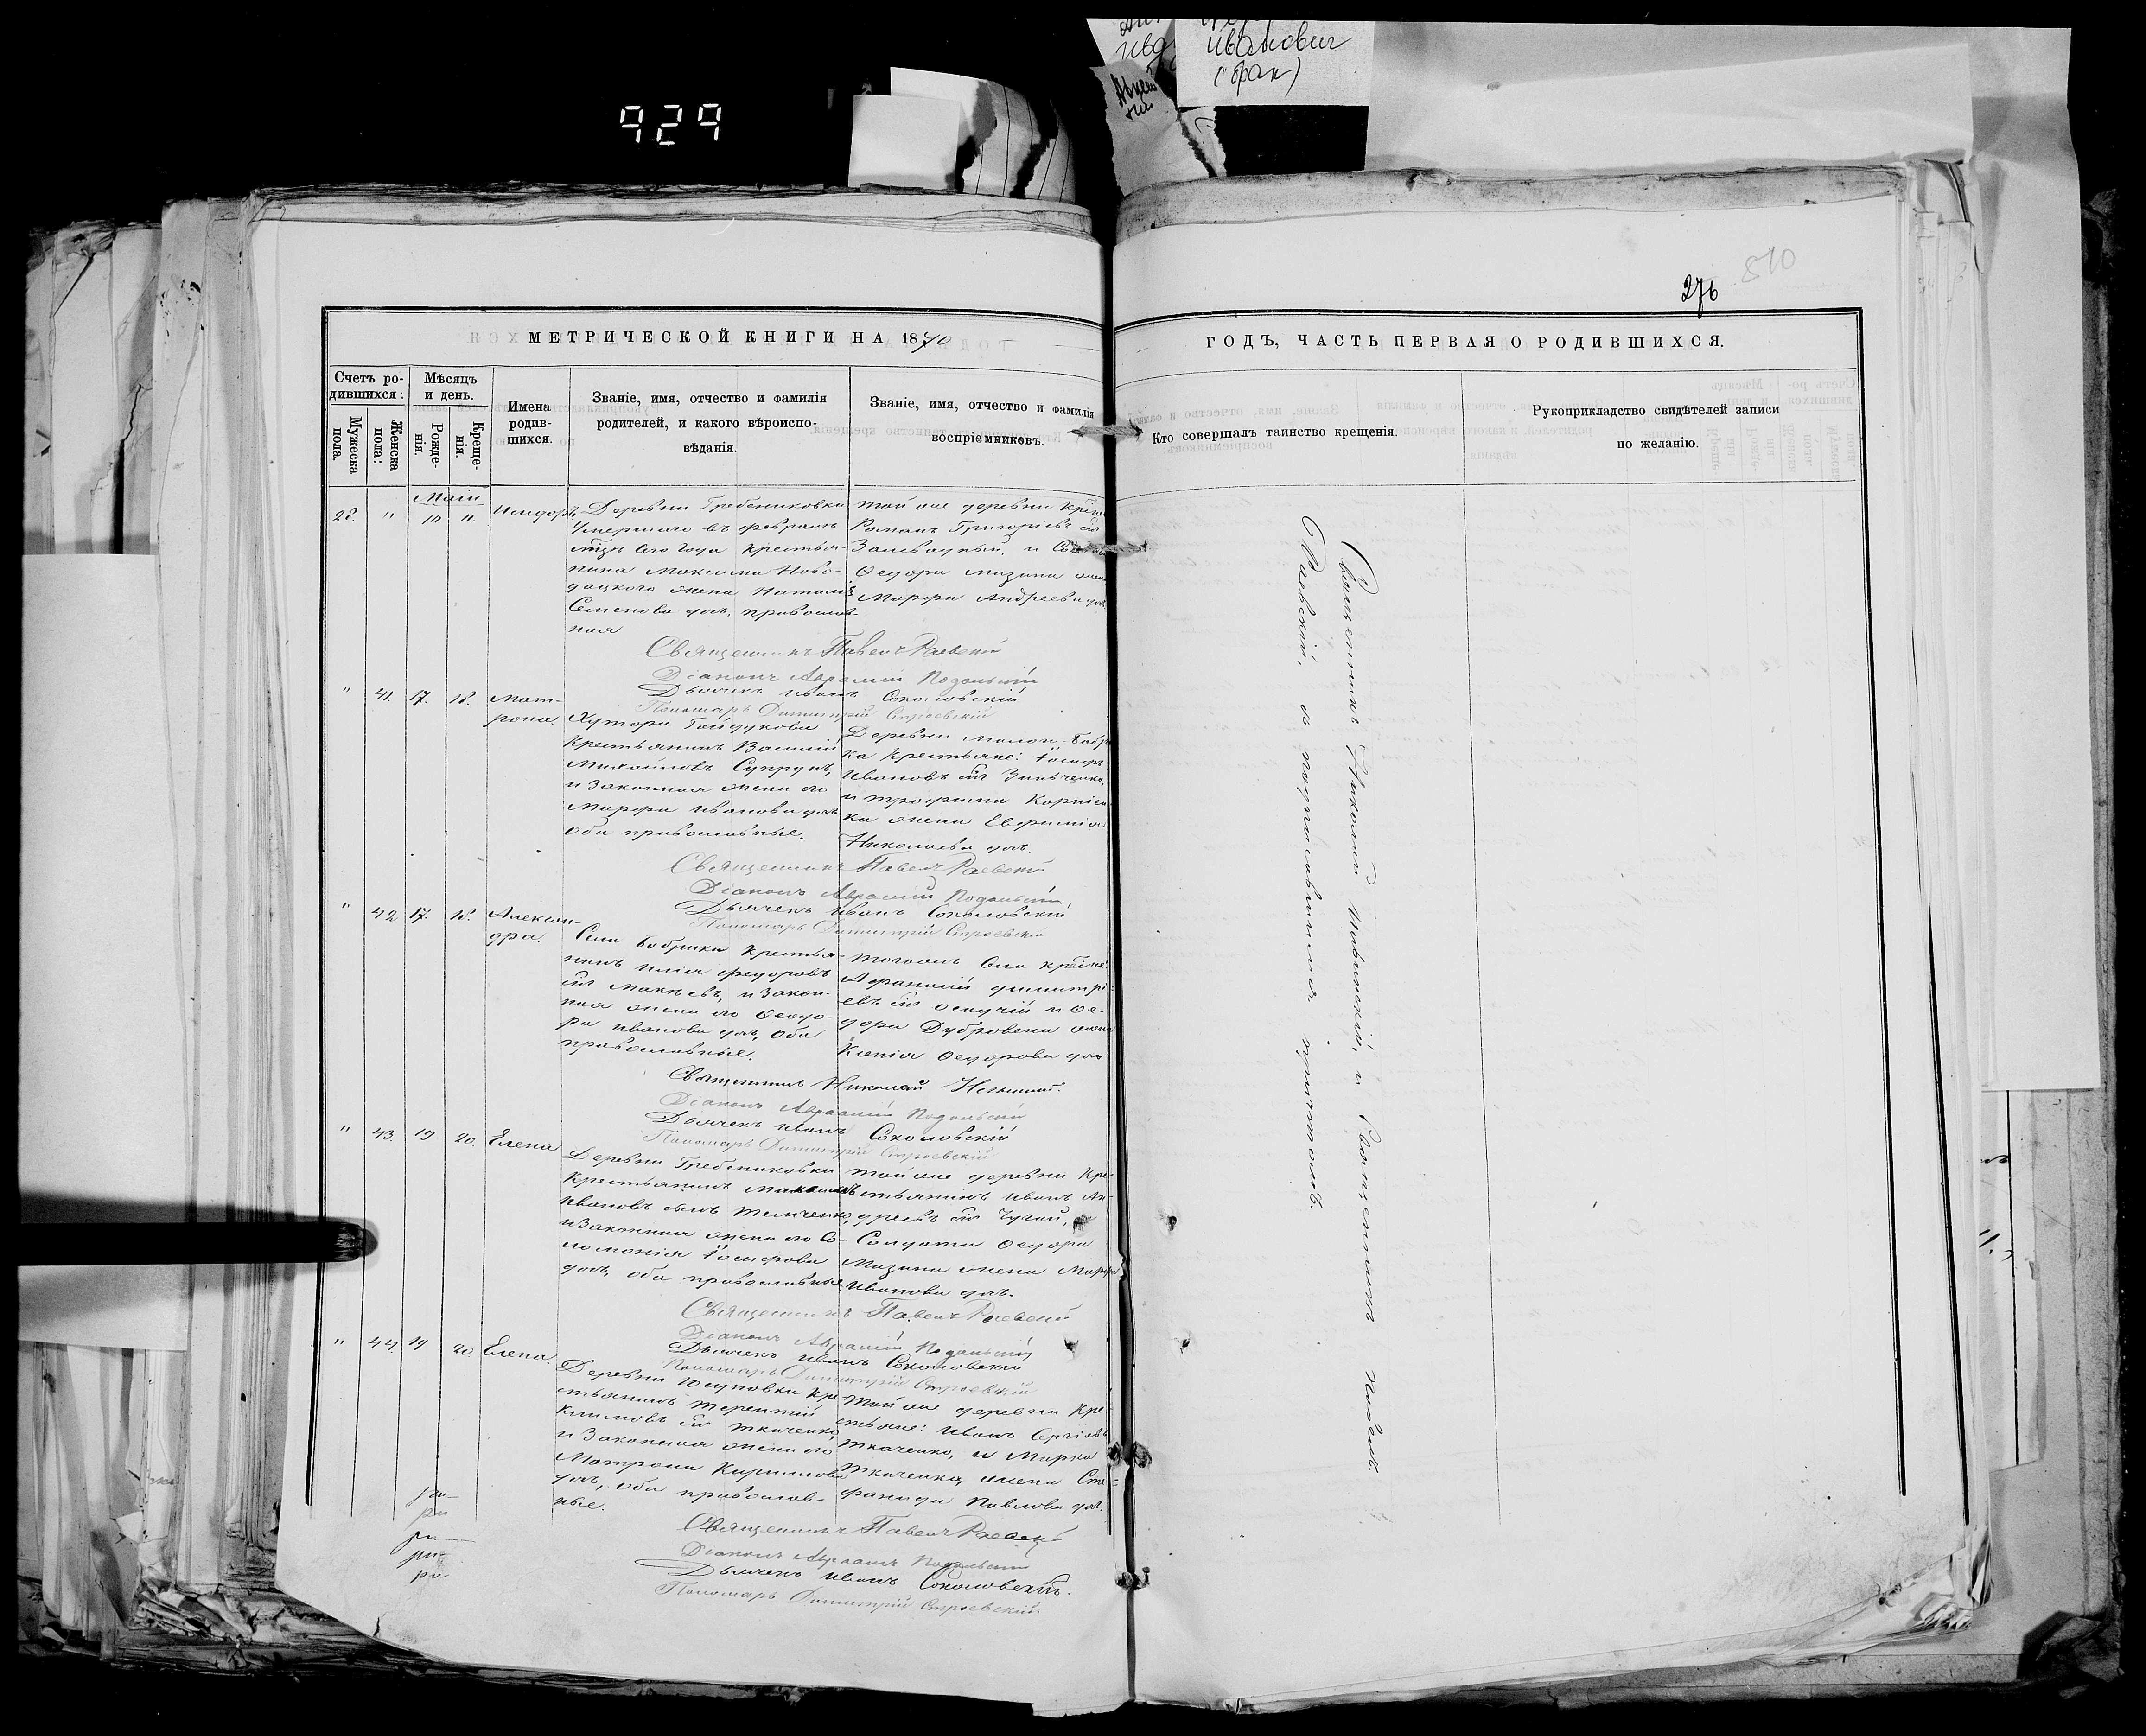 Иванович
(брак)
929
510
276
МЕТРИЧЕСКОЙ КНИГИ НА 1870
ГОДЪ, ЧАСТЬ ПЕРВАЯ О РОДИВШИХСЯ.
Счетъ ро-
дившихся:
Мужеска
пола.
Женска
пола:
Мѣсяцъ
и день.
Рожде-
нія.
Креще-
нія.
Имена
родив-
шихся.
Званіе, имя, отчество и фамилія
родителей, и какого вѣроиспо-
вѣданія.
Званіе, имя, отчество и фамилія
воспріемниковъ.
Кто совершалъ таинство крещенія.
Рукоприкладство свидѣтелей записи
по желанію.
Маія
28. " Исидоръ
Деревни Гребениковки
Умершаго въ февралѣ
сего года крестья-
нина Максима Ново-
дацкого жена Наталія
Семенова православ-
ная
той же деревни
Романъ Григорьевъ
Заливадный, и
Ѳедора Мизина жена
Марфа Андреева
Священникъ Павелъ Раевскій
Діаконъ Авраамій Подольскій
Дьячекъ Иванъ Соколовскій
Пономарь Димитрій Строевскій
" 41. 17. 18. Мат-
рона.
Хутора Гайдукова
крестьянинъ Василій
Михайловъ Супрунъ,
и законная жена его
Марфа Иванова
оба православные.
Деревни
крестьяне: Іосифъ
Ивановъ Зинченко,
и Трофима
жена Евфимія
Николаева
Священникъ Павелъ Раевскій
Діаконъ Авраамій Подольскій
Дьячекъ Иванъ Соколовскій
Пономарь Димитрій Строевскій
" 42 17. 18. Алексан-
дра.
Села Бобрика крестья-
нинъ Илія Федоровъ
и закон-
ная жена его Ѳеодо-
ра Иванова оба
православные.
тогожъ села
Димитрі-
евъ и Ѳе-
дора Дубровена жена
Ксенія Ѳедорова
Священникъ Николай
Діаконъ Авраамій Подольскій
Дьячекъ Иванъ Соколовскій
Пономарь Димитрій Строевскій
" 43. 19 20. Елена
Деревни Гребениковки
крестьянинъ
Ивановъ сынъ
и законная жена его Со-
ломонія Іосифова
оба православные
той же деревни Кре-
стьянинъ Иванъ Ан-
дреевъ
Солдата Ѳедора
Мизина жена Марфа
Иванова
Священникъ Павелъ Раевскій
Діаконъ Авраамій Подольскій
Дьячекъ Иванъ Соколовскій
Пономарь Димитрій Строевскій
" 44. 19 20. Елена.
Деревни Юсуповки кре-
стьянинъ Терентій
Климовъ Ткаченко,
и законная жена его
Матрона Кириллова
оба православ-
ные.
той же деревни кре-
стьяне: Иванъ Сергіевъ
Ткаченко, и Марка
Ткаченка жена Сте-
фанида Павлова
Священникъ Павелъ Раевскій
Діаконъ Авраамій Подольскій
Дьячекъ Иванъ Соколовскій.
Пономарь Димитрій Строевскій
Священникъ Николай и Священникъ Павелъ
Раевскій, съ подписавшимся причтомъ.